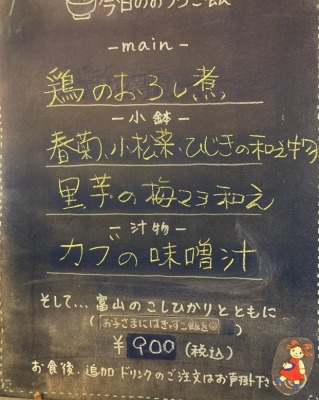 今日のおうちごはん
-main-
鶏のおろし煮
-小鉢-
春菊、小松菜、ひじきの和え物
里芋の梅マヨ和え
-汁物-
カブの味噌汁
そして…富山のこしひかりとともに
(お子さまにはきざみご飯を☺)
¥900(税込)
お食後、追加ドリンクのご注文はお声掛け下さ